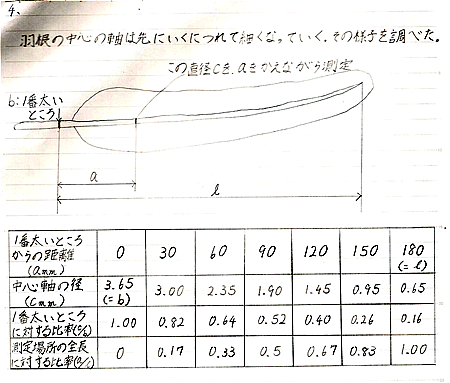 4、
羽根の中心の軸は先にいくにつれて細くなっていく、その様子を調べた。
この直径Cを、aをかえながら測定
b:1番太い
ところ
a
l
1番太いところ
からの距離
(amm)
0 30 60 90 120 150 180
(=l)
中心軸の径
(Cmm)
3.65
(=b)
3.00 2.35 1.90 1.45 0.95 0.65
1番太いところ
に対する比率(c/b)
1.00 0.82 0.64 0.52 0.40 0.26 0.16
測定場所の全長
に対する比率(a/l)
0 0.17 0.33 0.5 0.67 0.83 1.00